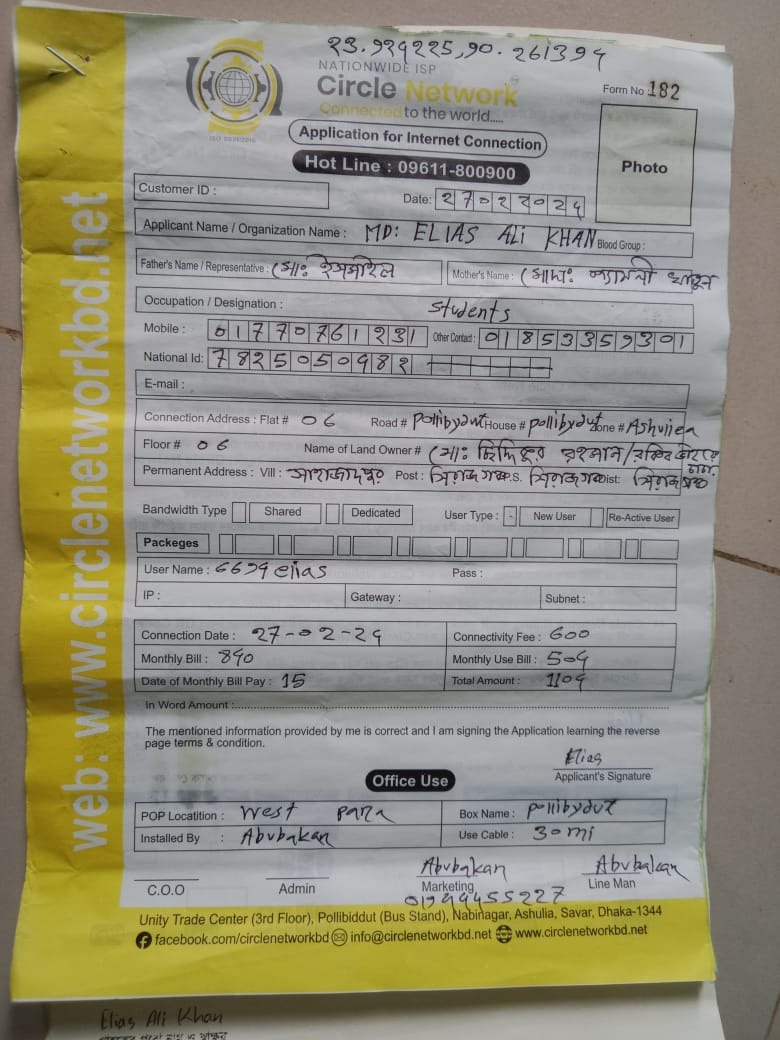 23.929225,90.261394
NATIONWIDE ISP
Circle Network
Connected to the world.....
Form No : 182
Application for Internet Connection
Hot Line : 09611-800900
Photo
Customer ID :
Date: 27022024
Applicant Name / Organization Name : MD: ELIAS ALi KHAN Blood Group :
Father's Name / Representative : মোঃ ইসমাইল Mother's Name : মোছাঃ শ্যামলী খাতুন
Occupation / Designation : Students
Mobile : 01770761231 Other Contact : 01853359301
National Id: 7825050982
E-mail :
Connection Address : Flat # 06 Road # pollibydut House # pollibydut Zone # Ashuliea
Floor # 06 Name of Land Owner # মোঃ রহমান/
Permanent Address : Vill : শাহজাদপুর Post : সিরাজগঞ্জ P.S. সিরাজগঞ্জ Dist: সিরাজগঞ্জ
Bandwidth Type Shared Dedicated User Type : - New User Re-Active User
Packeges
User Name : 6679elias Pass :
IP : Gateway : Subnet :
Connection Date : 27-02-24 Connectivity Fee : 600
Monthly Bill : 840 Monthly Use Bill : 504
Date of Monthly Bill Pay : 15 Total Amount : 1104
In Word Amount :
The mentioned information provided by me is correct and I am signing the Application learning the reverse
page terms & condition.
Elias
Applicant's Signature
Office Use
POP Locatition : West para Box Name : pollibydut
Installed By : Abubakan Use Cable : 30mi
Abubakan Abubakan
C.O.O Admin Marketing Line Man
Unity Trade Center (3rd Floor), Pollibiddut (Bus Stand), Nabinagar, Ashulia, Savar, Dhaka-1344
facebook.com/circlenetworkbd info@circlenetworkbd.net www.circlenetworkbd.net
web: www.circlenetworkbd.net
Elias Ali Khan